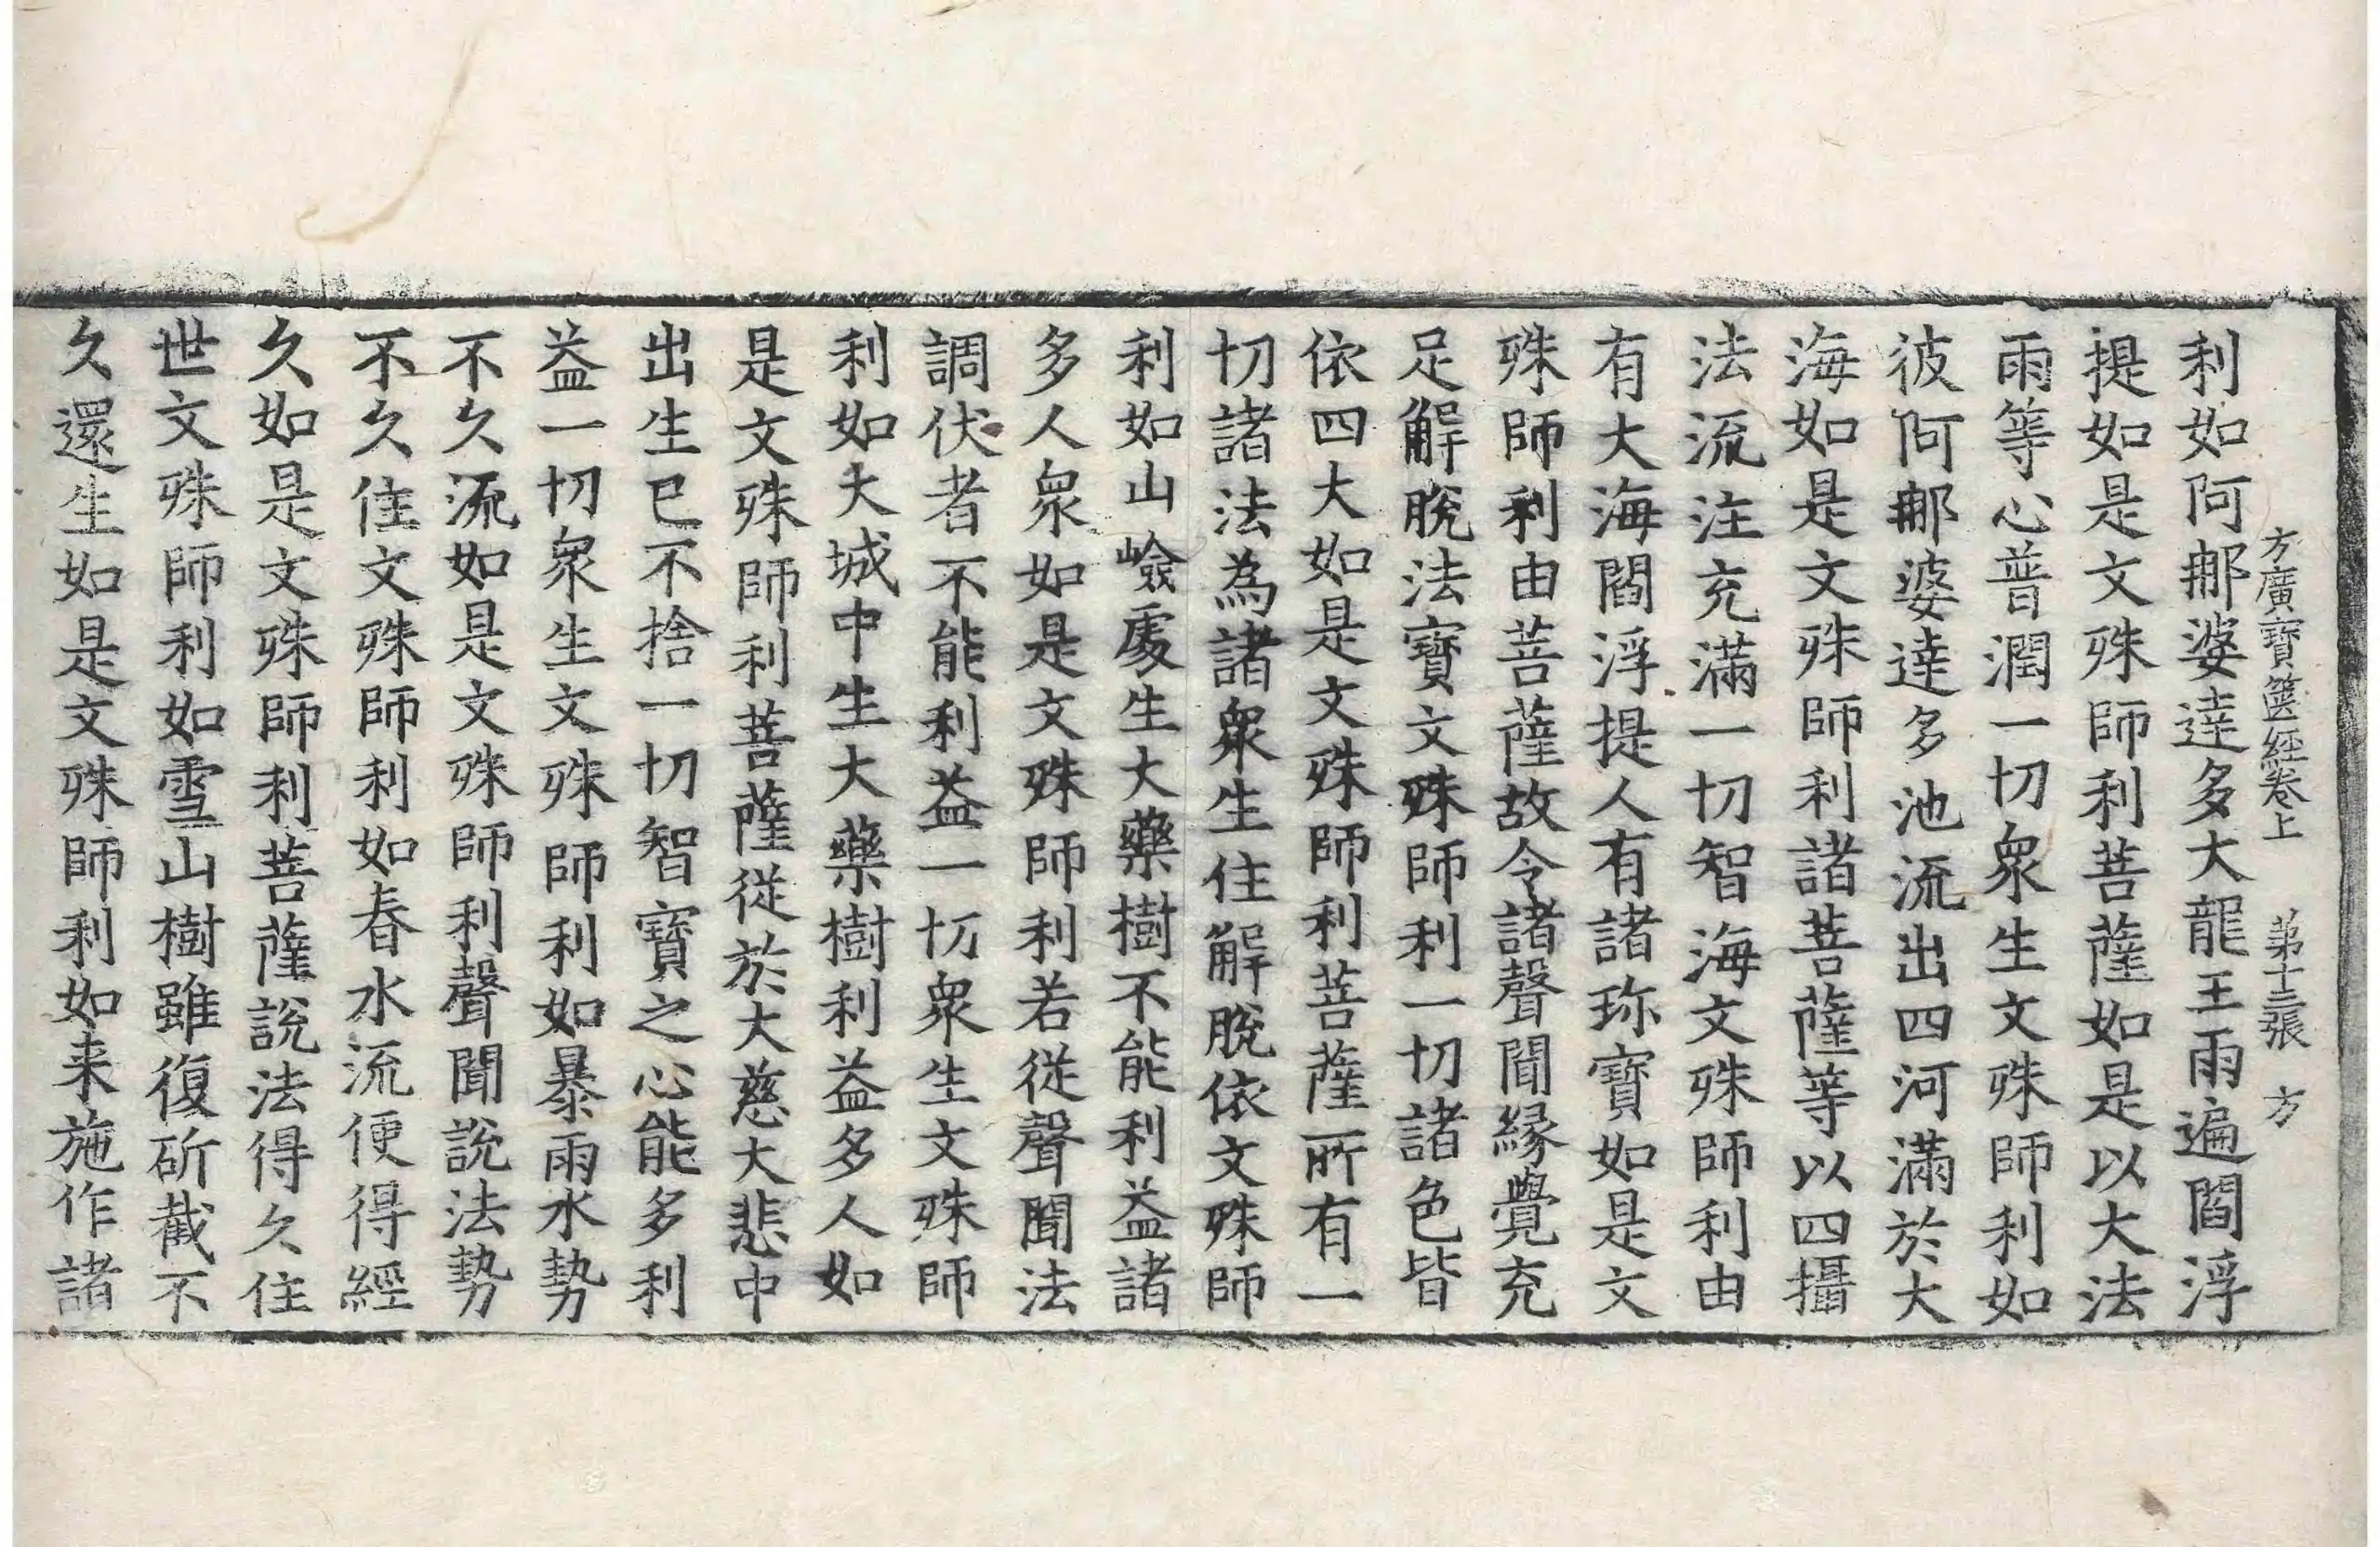 方廣寶篋經卷上 第十三張 方
利如阿那婆達多大龍王雨遍閻浮
提如是文殊師利菩薩如是以大法
雨等心普潤一切衆生文殊師利如
彼阿那婆達多池流出四河滿於大
海如是文殊師利諸菩薩等以四攝
法流注充滿一切智海文殊師利由
有大海閻浮提人有諸珎寶如是文
殊師利由菩薩故令諸聲聞緣覺充
足解脫法寶文殊師利一切諸色皆
依四大如是文殊師利菩薩所有一
切諸法為諸衆生住解脫依文殊師
利如山嶮處生大藥樹不能利益諸
多人衆如是文殊師利若從聲聞法
調伏者不能利益一切衆生文殊師
利如大城中生大藥樹利益多人如
是文殊師利菩薩從於大慈大悲中
出生已不捨一切智寶之心能多利
益一切衆生文殊師利如暴雨水勢
不久流如是文殊師利聲聞說法勢
不久住文殊師利如春水流便得經
久如是文殊師利菩薩說法得久住
世文殊師利如雪山樹雖復斫截不
久還生如是文殊師利如来施作諸